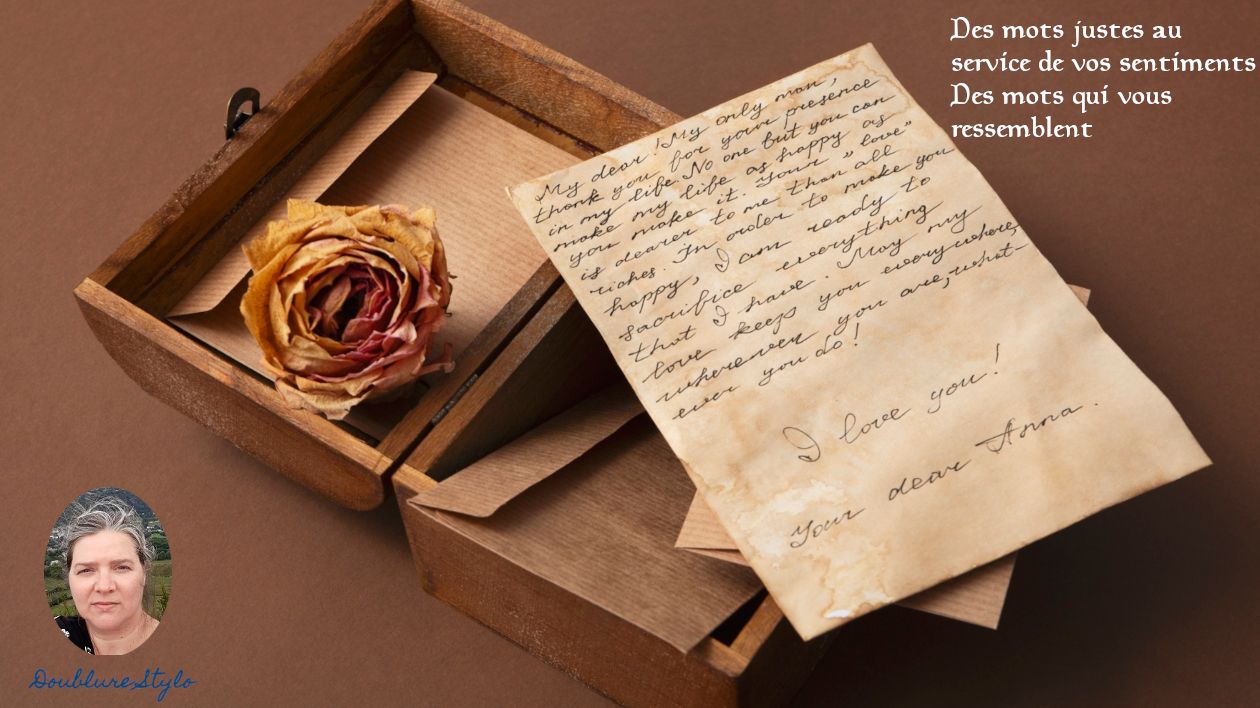 Des mots justes au
service de vos sentiments
Des mots qui vous
ressemblent
My dear! My only man,
thank you for your presence
in my life. No one but you can
make my life as happy as
you make it. Your „love”
is dearer to me than all
riches. In order to make you
happy, I am ready to
sacrifice everything
that I have. May my
love keep you everywhere,
wherever you are, what-
ever you do!
I love you!
Your dear Anna.
DoublureStylo